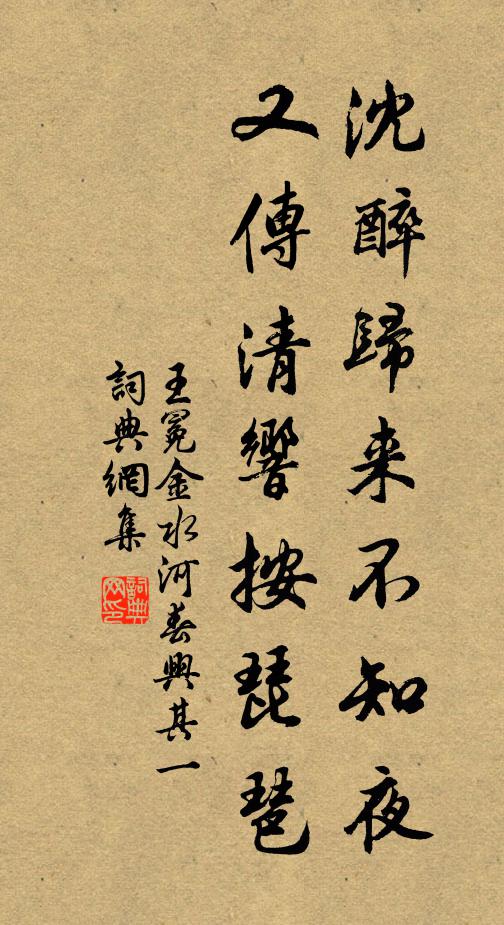 沈醉歸来不知夜
又傳清響按琵琶
王冕金水河春興其一
詞典網集
詞典网印